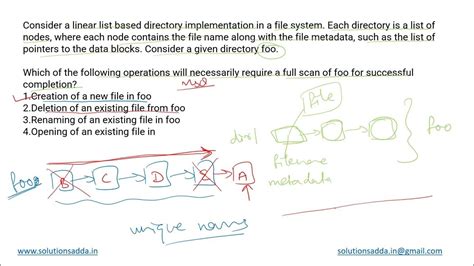 Consider a linear list based directory implementation in a file system. Each directory is a list of
nodes, where each node contains the file name along with the file metadata, such as the list of
pointers to the data blocks. Consider a given directory foo.
Which of the following operations will necessarily require a full scan of foo for successful
completion?
MSQ
1.Creation of a new file in foo
2.Deletion of an existing file from foo
3.Renaming of an existing file in foo
4.Opening of an existing file in
file
foo
filename
metadata
foo
B C D E A
unique names
www.solutionsadda.in
solutionsadda.in@gmail.com